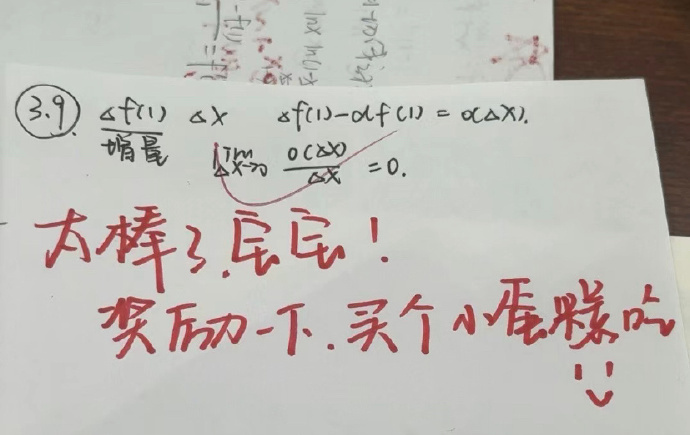 3.9. Δf(1) Δx Δf(1)-df(1) = o(Δx).
增量 lim Δx→0 o(Δx)/Δx = 0.
太棒了,宝宝!
奖励一下.买个小蛋糕吃